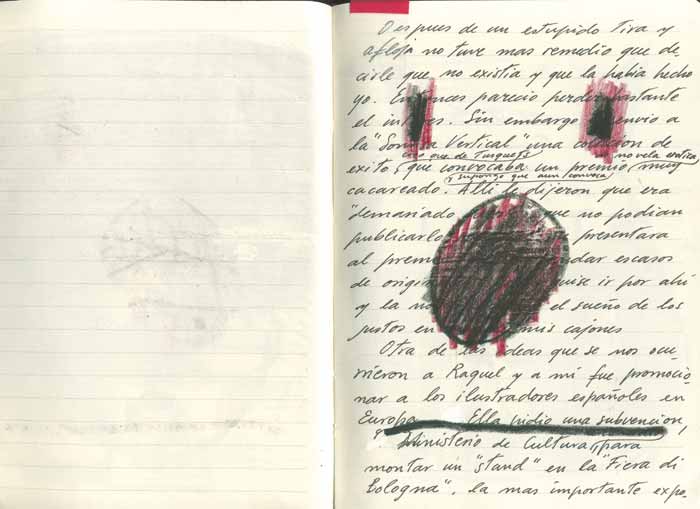 Despues de un estupido tira y
afloja no tuve mas remedio que de
cirle que no existia y que la habia hecho
yo. Entonces parecio perder bastante
el interes. Sin embargo envio a
la "Sonrisa Vertical" una coleccion de
creo que de Tusquets
novela erotica
exito, que convocaba un premio, muy
y supongo que aun convoca
cacareado. Alli le dijeron que era
"demasiado que no podian
publicarlo presentara
al premio andar escasos
de origi quise ir por ahi
y la no el sueño de los
justos en mis cajones
Otra de las ideas que se nos ocu-
rrieron a Raquel y a mi fue promocio-
nar a los ilustradores españoles en
Europa Ella pidio una subvencion,
Ministerio de Cultura, para
montar un "stand" en la "Fiera di
Bologna", la mas importante expo-